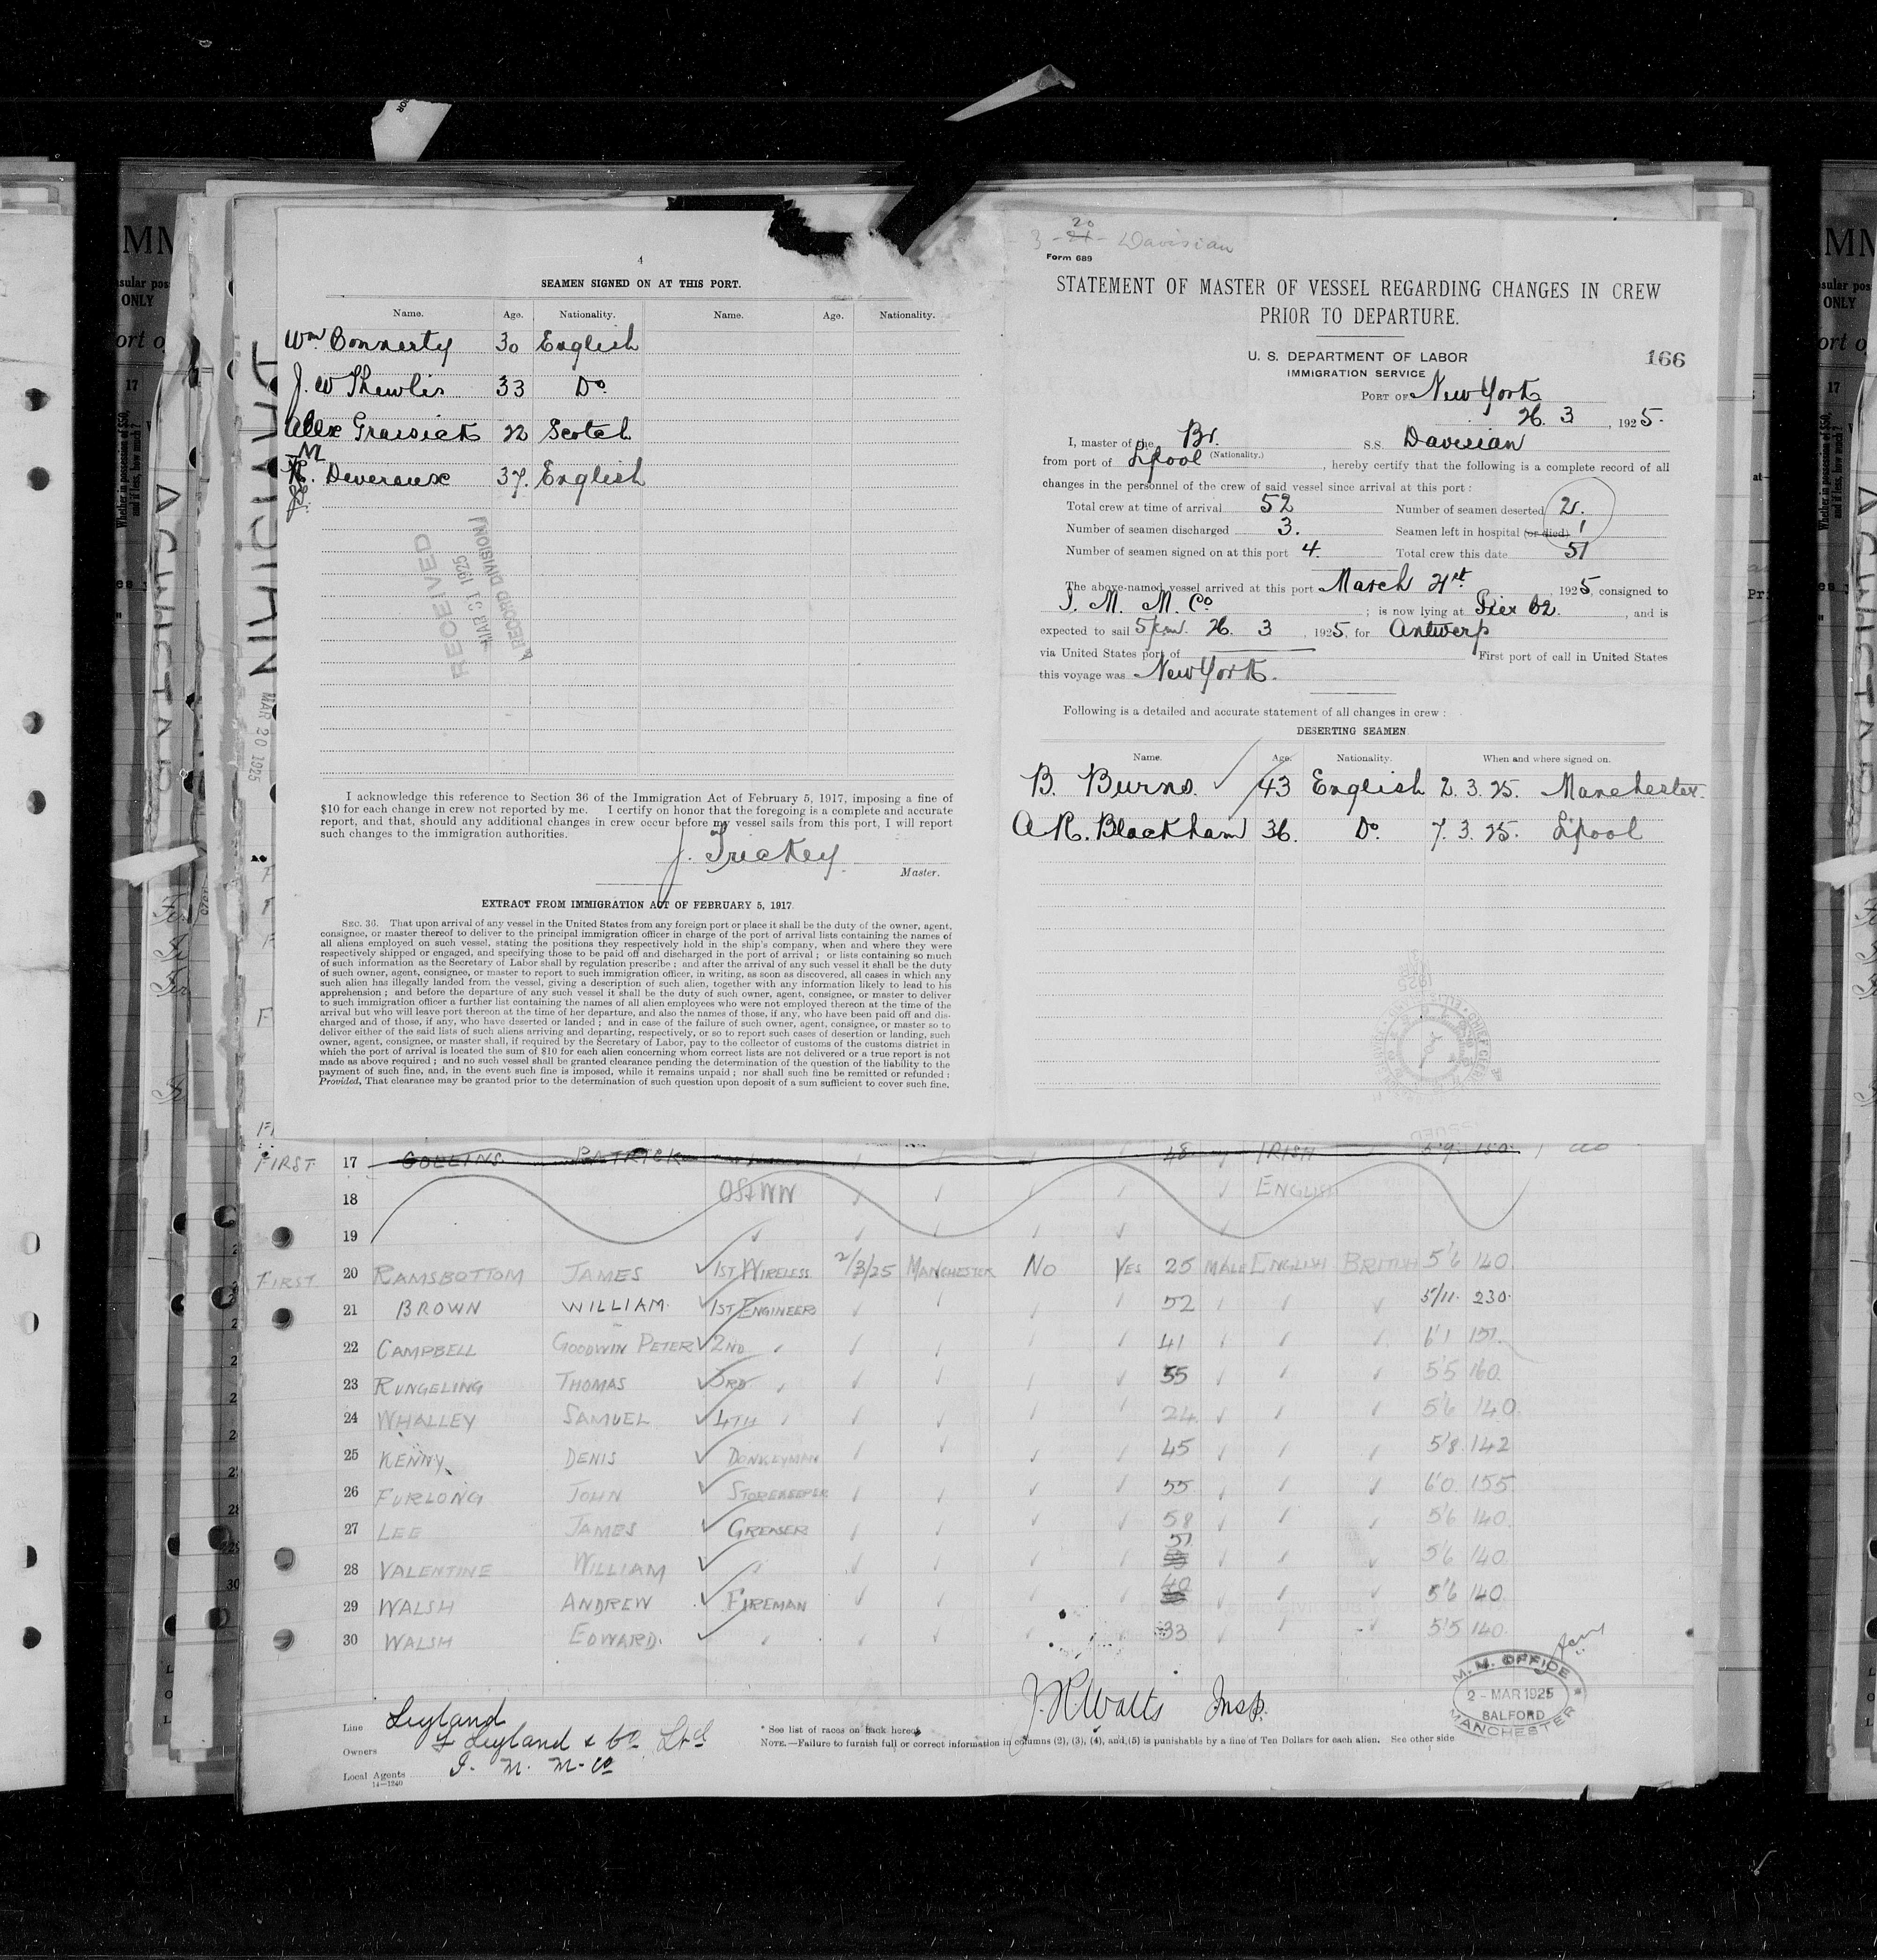 4
SEAMEN SIGNED ON AT THIS PORT.
Name. Age. Nationality. Name. Age. Nationality.
Wm Connerty 30 English
J. W Thewlis 33 Do.
Alex 22 Scotch
M. Deveraux 37. English
RECEIVED
MAR 31 1925
RECORD DIVISION
DAVISIAN
MAR 20 1925
I acknowledge this reference to Section 36 of the Immigration Act of February 5, 1917, imposing a fine of
$10 for each change in crew not reported by me. I certify on honor that the foregoing is a complete and accurate
report, and that, should any additional changes in crew occur before my vessel sails from this port, I will report
such changes to the immigration authorities.
J. Trickey
Master.
EXTRACT FROM IMMIGRATION ACT OF FEBRUARY 5, 1917.
SEC. 36. That upon arrival of any vessel in the United States from any foreign port or place it shall be the duty of the owner, agent,
consignee, or master thereof to deliver to the principal immigration officer in charge of the port of arrival lists containing the names of
all aliens employed on such vessel, stating the positions they respectively hold in the ship's company, when and where they were
respectively shipped or engaged, and specifying those to be paid off and discharged in the port of arrival; or lists containing so much
of such information as the Secretary of Labor shall by regulation prescribe; and after the arrival of any such vessel it shall be the duty
of such owner, agent, consignee, or master to report to such immigration officer, in writing, as soon as discovered, all cases in which any
such alien has illegally landed from the vessel, giving a description of such alien, together with any information likely to lead to his
apprehension; and before the departure of any such vessel it shall be the duty of such owner, agent, consignee, or master to deliver
to such immigration officer a further list containing the names of all alien employees who were not employed thereon at the time of the
arrival but who will leave port thereon at the time of her departure, and also the names of those, if any, who have been paid off and dis-
charged and of those, if any, who have deserted or landed; and in case of the failure of such owner, agent, consignee, or master so to
deliver either of the said lists of such aliens arriving and departing, respectively, or so to report such cases of desertion or landing, such
owner, agent, consignee, or master shall, if required by the Secretary of Labor, pay to the collector of customs of the customs district in
which the port of arrival is located the sum of $10 for each alien concerning whom correct lists are not delivered or a true report is not
made as above required; and no such vessel shall be granted clearance pending the determination of the question of the liability to the
payment of such fine, and, in the event such fine is imposed, while it remains unpaid; nor shall such fine be remitted or refunded:
Provided, That clearance may be granted prior to the determination of such question upon deposit of a sum sufficient to cover such fine.
3 - 20 - Davisian
Form 689
STATEMENT OF MASTER OF VESSEL REGARDING CHANGES IN CREW
PRIOR TO DEPARTURE.
U. S. DEPARTMENT OF LABOR
IMMIGRATION SERVICE
166
PORT OF New York
26. 3, 1925.
I, master of the Br. S.S. Davisian
(Nationality.)
from port of L'pool, hereby certify that the following is a complete record of all
changes in the personnel of the crew of said vessel since arrival at this port:
Total crew at time of arrival 52 Number of seamen deserted 2.
Number of seamen discharged 3. Seamen left in hospital (or died) 1
Number of seamen signed on at this port 4. Total crew this date 51
The above-named vessel arrived at this port March 21st, 1925, consigned to
I. M. M. Co; is now lying at Pier 62., and is
expected to sail 5 p.m. 26. 3, 1925, for Antwerp
via United States port of First port of call in United States
this voyage was New York.
Following is a detailed and accurate statement of all changes in crew:
DESERTING SEAMEN.
Name. Age. Nationality. When and where signed on.
B. Burns. 43 English 2. 3. 25. Manchester.
A R. Blackham 36. Do. 7. 3. 25. L'pool
FIRST 17 COLLINS PATRICK 48 IRISH 5'9 150
18 ENGLISH
19
FIRST 20 RAMSBOTTOM JAMES 1ST WIRELESS 2/3/25 MANCHESTER NO YES 25 MALE ENGLISH BRITISH 5'6 140
21 BROWN WILLIAM. 1ST ENGINEER 52 5/11. 230.
22 CAMPBELL GOODWIN PETER 2ND 41 6'1 151.
23 RUNGELING THOMAS 3RD 55 5'5 160.
24 WHALLEY SAMUEL 4TH 24 5'6 140.
25 KENNY DENIS DONKEYMAN 45 5'8 142
26 FURLONG JOHN STOREKEEPER 55 6'0 155
27 LEE JAMES GREASER 58 5'6 140
28 VALENTINE WILLIAM 51 5'6 140
29 WALSH ANDREW FIREMAN 40 5'6 140
30 WALSH EDWARD. 33 5'5 140
J. H. Watts Insp.
M.M. OFFICE
2 - MAR 1925
SALFORD
MANCHESTER
Line Leyland
Owners F Leyland & Co Ltd
Local Agents I. M. M. Co
14-1240
* See list of races on back hereof.
NOTE.—Failure to furnish full or correct information in columns (2), (3), (4), and (5) is punishable by a fine of Ten Dollars for each alien. See other side